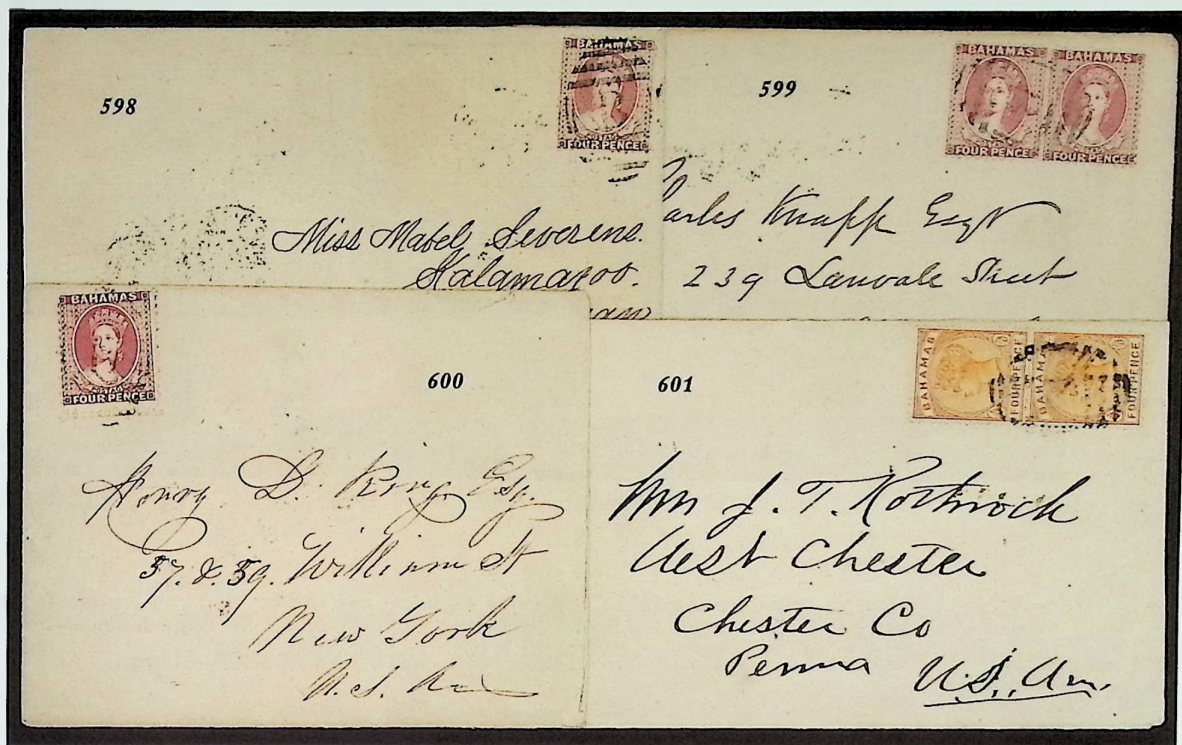 598
BAHAMAS
FOUR PENCE
Miss Mabel Severens.
Kalamazoo.
599
BAHAMAS BAHAMAS
FOUR PENCE FOUR PENCE
arles Knapp Esqr
239 Lanvale Street
BAHAMAS
POSTAGE
FOUR PENCE
600
Henry D. King Esq.
57. & 59. William St
New York
U.S. Am
601
BAHAMAS
FOUR PENCE
BAHAMAS
FOUR PENCE
J. T. Rothrock
West Chester
Chester Co
Penna U.S. Am.